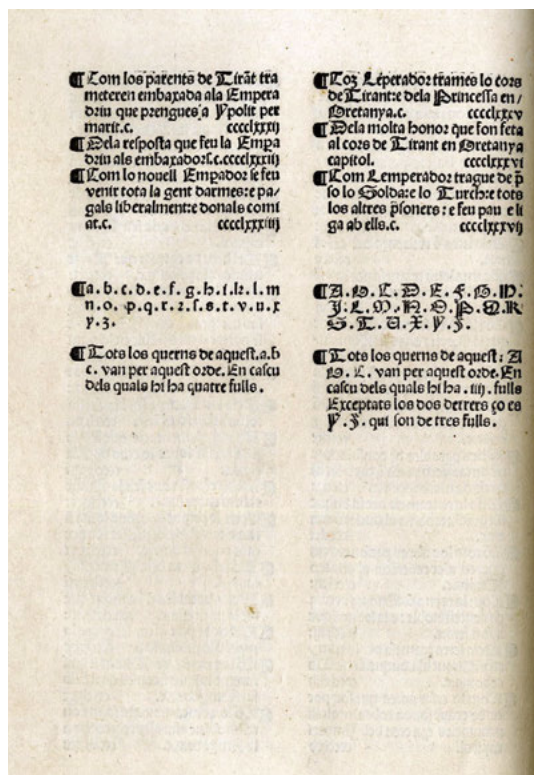 ¶ Com los parents de Tirãt tra
meteren embaxada ala Empera
driu que prengues a Ypolit per
marit.c. cccclxxxij
¶ Dela resposta que feu la Empa
driu als embaxadors.c.cccclxxxiij
¶ Com lo nouell Empador se feu
venir tota la gent darmes:e pa/
gals liberalment:e donals comi
at.c. cccclxxxiiij
¶ a.b.c.d.e.f.g.h.i.k.l.m
n.o.p.q.r.2.ſ.s.t.v.u.x
y.3.
¶ Tots los querns de aquest.a.b
c. van per aquest orde. En cascu
dels quals hi ha quatre fulls.
¶ Com Lẽperador trames lo cors
de Tirant:e dela Princessa en/
Bretanya.c. cccclxxxv
¶ Dela molta honor que fon feta
al cors de Tirant en Bretanya
capitol. cccclxxxvi
¶ Com Lemperador trague de p̃
so lo Solda:e lo Turch:e tots
los altres p̃soners:e feu pau e li
ga ab ells.c. cccclxxxvij
¶ A.B.C.D.E.F.G.H.
I.L.M.N.O.P.Q.R
S.T.U.X.Y.Z.
¶ Tots los querns de aquest: A
B.C. van per aquest orde. En
cascu dels quals hi ha .iiij. fulls
Exceptats los dos derrers ço es
Y.Z. qui son de tres fulls.